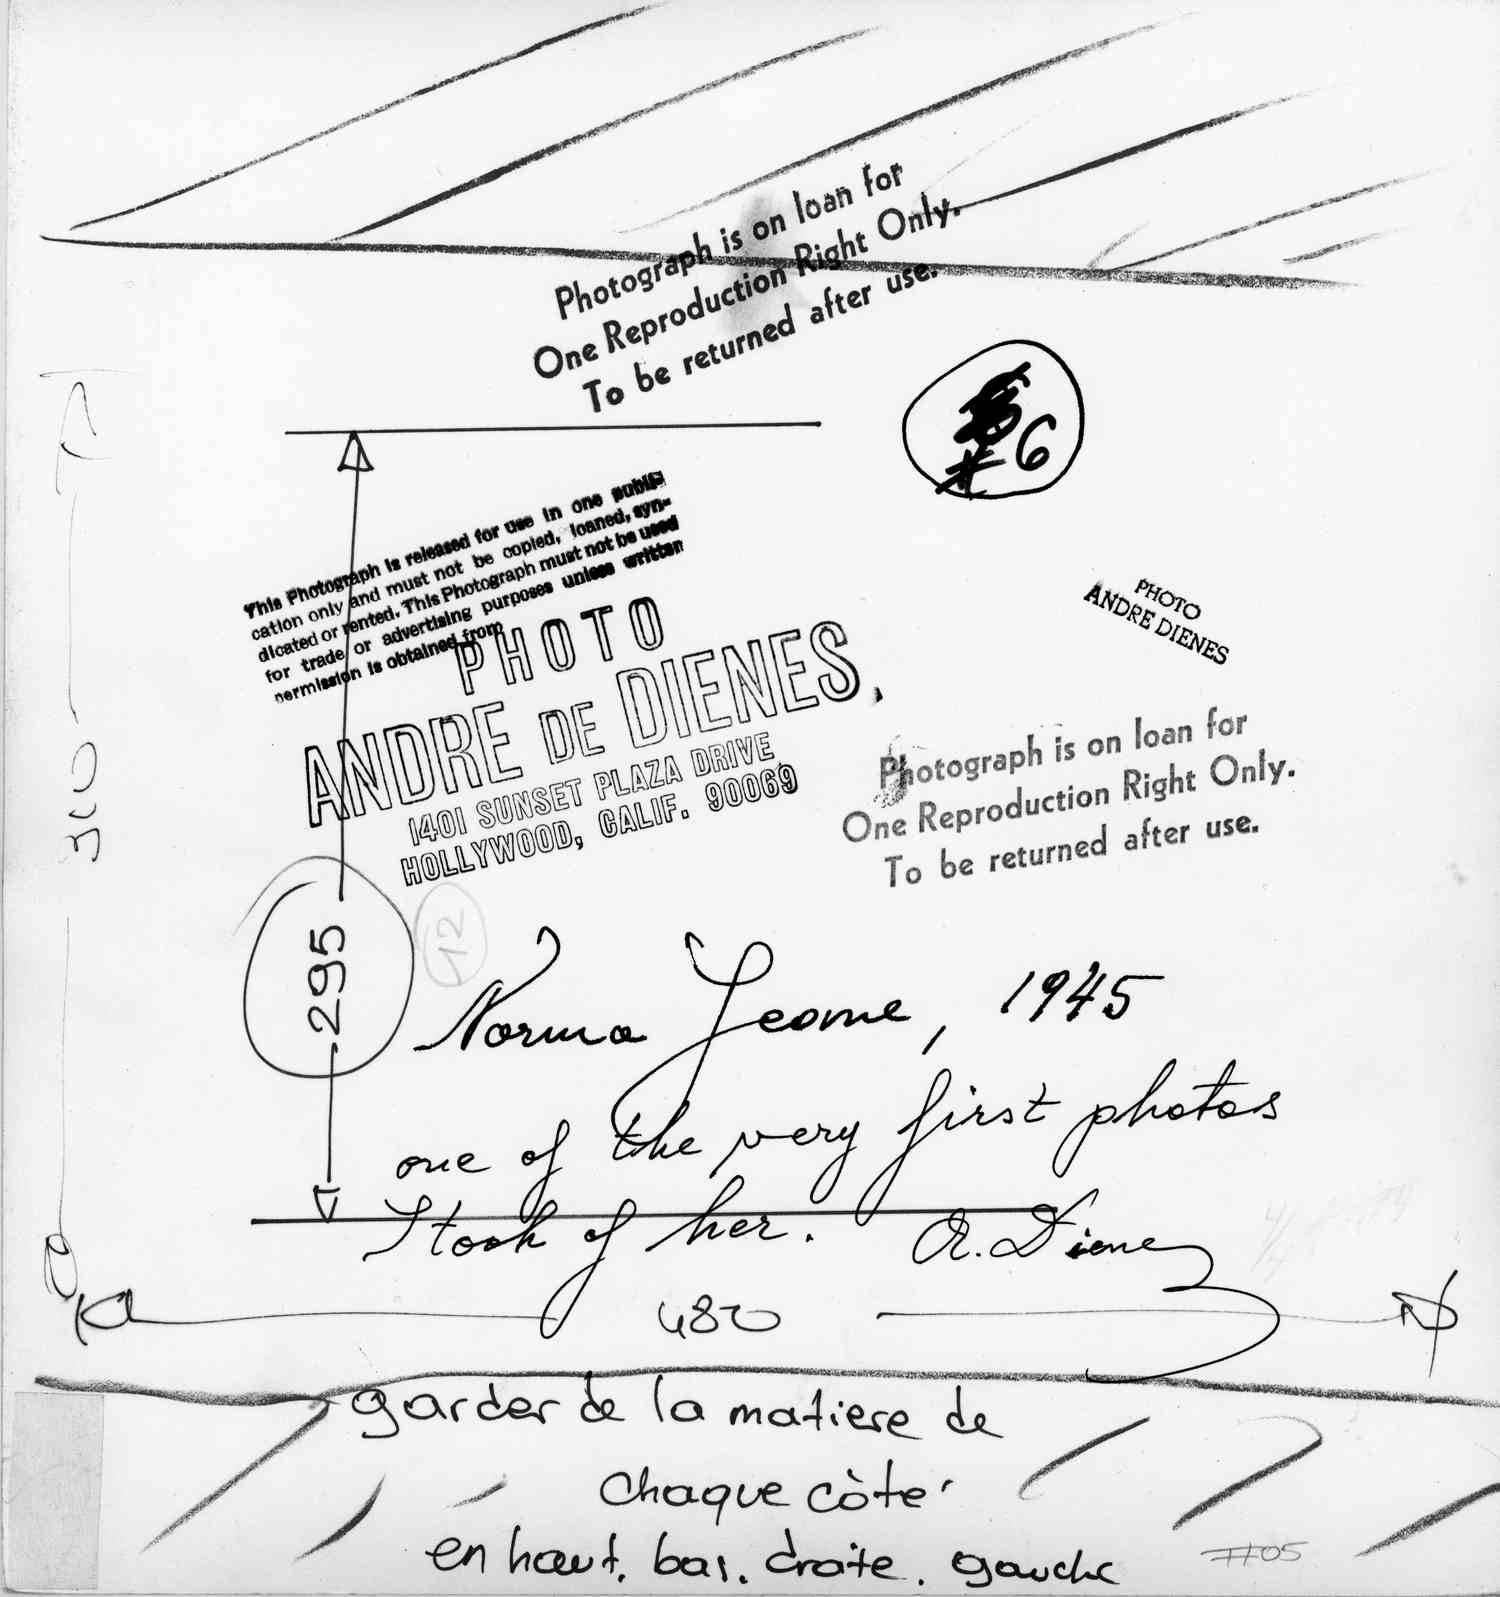 Photograph is on loan for
One Reproduction Right Only.
To be returned after use.
6
This Photograph is released for use in one publi-
cation only and must not be copied, loaned, syn-
dicated or rented. This Photograph must not be used
for trade or advertising purposes unless written
permission is obtained from
PHOTO
ANDRE DE DIENES,
1401 SUNSET PLAZA DRIVE
HOLLYWOOD, CALIF. 90069
PHOTO
ANDRE DIENES
Photograph is on loan for
One Reproduction Right Only.
To be returned after use.
295
12
Norma Jeane, 1945
one of the very first photos
I took of her. A. Dienes
480
garder de la matiere de
chaque côte
en haut. bas. droite. gauche